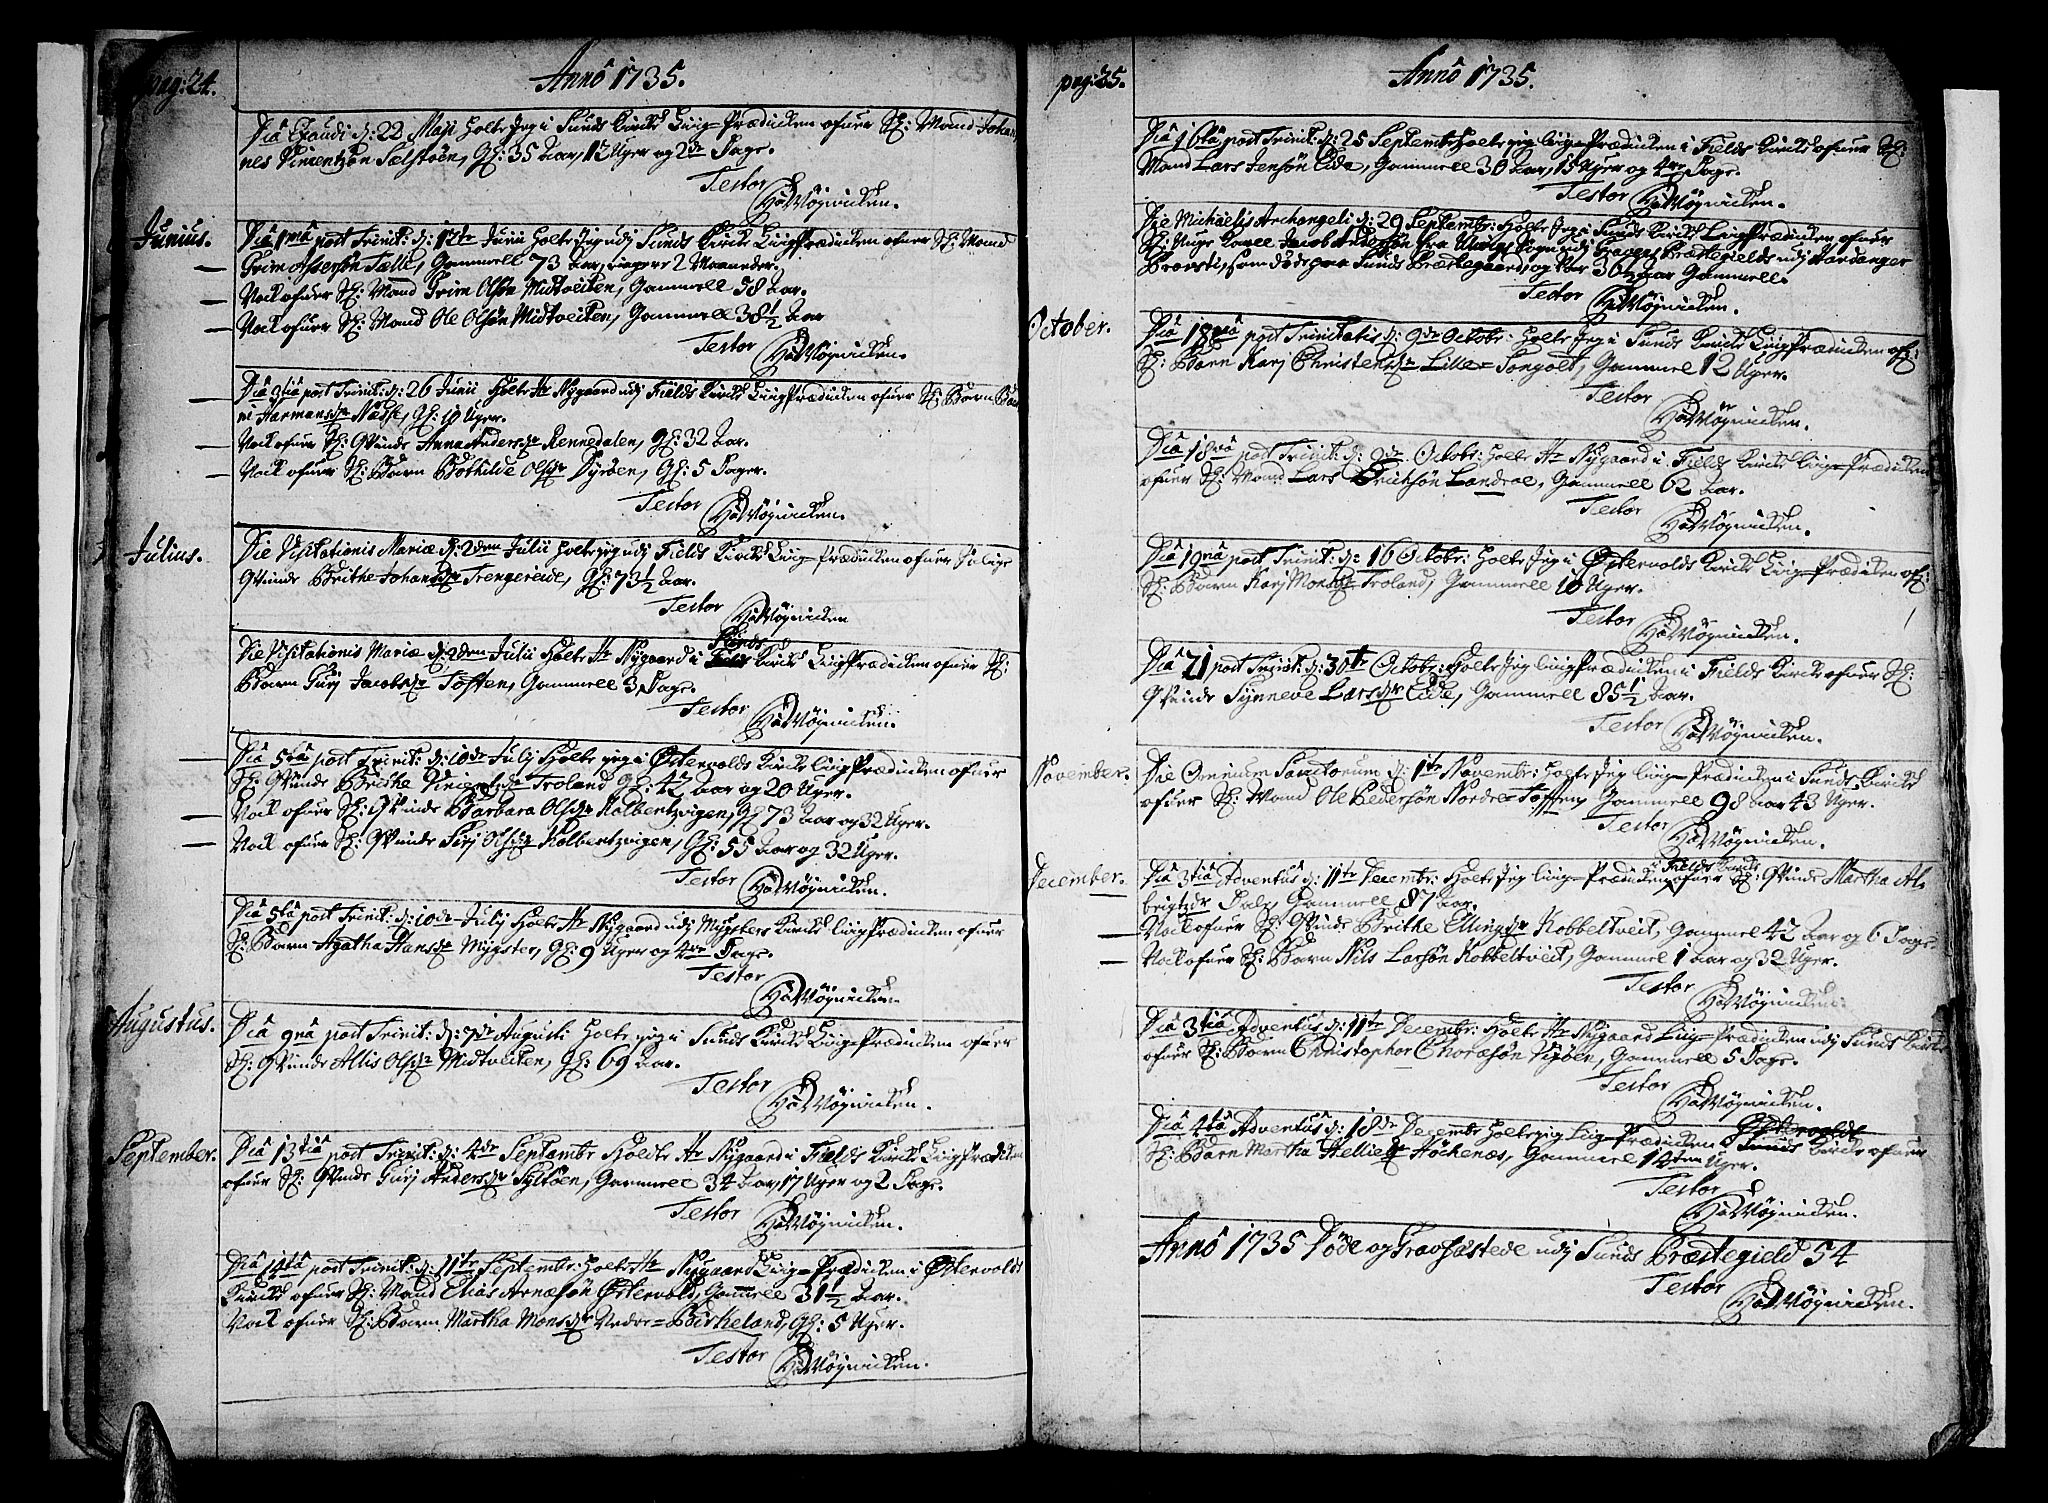 pag: 24.
Anno 1735.
Dia Exaudi d: 22 Maji holte Jeg i Sunds Kircke Liig-Prædicken ofuer Sl: Mand Johan-
nes Vincentzsøn Selstøen, Gl: 35 Aar, 12 Uger og 2de Dage.
Testor
HaMøinicken.
Junius.
Dia 1ma post Trinit: d: 12te Junii holte Jeg udj Sunds Kircke LiigPrædicken ofuer Sl: Mand
Grim Assersøn Tælle, Gammell 73 Aar, 2 Maaneder.
Nock ofuer Sl: Mand Grim Olsøn Midtveiten, Gammell 58 Aar.
Nock ofuer Sl: Mand Ole Olsøn Midtveiten, Gammell 38 1/2 Aar
Testor
HaMøinicken.
Dia 3tia post Trinit: d: 26 Junii holte Hr Nygaard udj Fields Kircke LiigPrædicken ofuer Sl: Barn
Harmansdr Næsse, Gl: 10 Uger.
Nock ofuer Sl: Qvinde Anna Andersdr Rennedalen, gl: 32 Aar.
Nock ofuer Sl: Barn Bothilde Olsdr Dyrøen, Gl: 5 Dager.
Testor
HaMøinicken.
Julius.
Die Visitationis Mariæ d: 2den Julii holte jeg udj Fields Kircke Liig-Prædicken ofuer Salige
Qvinde Brithe Johansdr Trengereide, Gl: 73 1/2 Aar.
Testor
HaMøinicken
Die Visitationis Mariæ d: 2den Julii holte Hr Nygaard i Sunds Kircke LiigPrædicken ofuer Sl:
Barn Gurj Jacobsdr Toften, Gammell 3 Dage.
Testor
HaMøinicken.
Dia 5ta post Trinit: d: 10de Julij holte jeg i Østervolds Kircke LiigPrædicken ofuer
Sl: Qvinde Brithe Vincentzdr Troland gl: 42 Aar og 20 Uger.
Nock ofuer Sl: Qvinde Barbara Olsdr Kolbentzvigen, Gl 73 Aar og 32 Uger.
Nock ofuer Sl: Qvinde Sirj Olsdr Kolbentzvigen, Gl: 55 Aar og 32 Uger.
Testor
HaMøinicken.
Dia 5ta post Trinit: d: 10de Julij holte Hr Nygaard udj Mygsters Kircke LiigPrædicken ofuer
Sl: Barn Agatha Hansdr Mygster, Gl: 9 Uger og 4re Dage.
Testor
HaMøinicken.
Augustus.
Dia 9na post Trinit: d: 7de Augusti holte jeg i Sunds Kircke Liig-Prædicken ofuer
Sl: Qvinde Allis Olsdr Midtveiten, Gl: 69 Aar.
Testor
HaMøinicken.
September.
Dia 13tia post Trinit: d: 4de Septembr holdte Hr Nygaard i Fields Kircke LiigPrædicken
ofuer Sl: Qvinde Gurj Andersdr Syltøen, Gammell 34 Aar, 17 Uger og 2 Dage.
Testor
HaMøinicken.
Dia 14ta post Trinit: d: 11te Septembr: holte Hr Nygaard Liig-Prædicken i Østervolds
Kircke ofuer Sl: Mand Elias Arnesøn Østervold, Gammell 31 1/2 Aar.
Nock ofuer Sl: Barn Martha Monsdr Nedre-Birkeland, Gl: 5 Uger.
Testor
HaMøinicken.
pag: 25.
Anno 1735.
Dia 16ta post Trinit: d: 25 Septembr holte jeg Liig-Prædicken i Fields Kircke ofuer Sl:
Mand Lars Jensøn Eide, Gammell 30 Aar, 15 Uger og 4re Dage.
Testor
HaMøinicken.
Die Michaelis Archangeli d: 29 Septembr: holte Jeg i Sunds Kircke LiigPrædicken ofuer
Sl: Unge Karll Jacob Andersøn fra Ulvigs Sogn udj Gravens Præstegields udj Hardanger
Provsti, som døde paa Sunds Præstegaard, og var 36 Aar Gammell.
Testor
HaMøinicken.
October.
Dia 18va post Trinitatis d: 9de Octobr: holte Jeg i Sunds Kircke LiigPrædicken of:
Sl: Barn Karj Christensdr Lille-Songolt, Gammel 12 Uger.
Testor
HaMøinicken.
Dia 18va post Trinit: d: 9de Octobr: holte Hr Nygaard i Fields Kircke Liig-Prædicken
ofuer Sl: Mand Lars Erichsøn Landroe, Gammell 62 Aar.
Testor
HaMøinicken.
Dia 19na post Trinit: d: 16 Octobr: holte Jeg i Østervolds Kircke Liig-Prædicken of:
Sl: Barn Karj Monsdr Troland, Gammell 10 Uger.
Testor
HaMøinicken.
Dia 21 post Trinit: d: 30te Octobr: holte Jeg LiigPrædicken i Fields Kircke ofuer Sl:
Qvinde Synneve Larsdr Eide, Gammell 85 1/2 Aar.
Testor
HaMøinicken.
November.
Die Omnium Sanctorum d: 1te Novembr: holte Jeg Liig-Prædicken i Sunds Kircke
ofuer Sl: Mand Ole Pedersøn Nordre-Toften, Gammell 98 Aar 43 Uger.
Testor
HaMøinicken.
December.
Dia 3tia Adventus d: 11te Decembr: holte Jeg Liig-Prædicken i Fields Kircke ofuer Sl: Qvinde Martha Al-
brigtzdr Dale, Gammell 87 Aar.
Nock ofuer Sl: Qvinde Brithe Ellingsdr Kobbeltveit, Gammel 42 Aar og 6 Dage.
Nock ofuer Sl: Barn Nils Larsøn Kobbeltveit, Gammel 1 Aar og 32 Uger.
Testor
HaMøinicken.
Dia 3tia Adventus d: 11te Decembr: holte Hr Nygaard Liig-Prædicken udj Sunds Kircke
ofuer Sl: Barn Christopher Thoresøn Vixøen, Gammell 5 Dage.
Testor
HaMøinicken.
Dia 4ta Adventus d: 18de Decembr holte jeg Liig-Prædicken i Sunds Kircke ofuer
Sl: Barn Martha Hellie Høckenæs, Gammell 14ten Uger.
Testor
HaMøinicken.
Anno 1735 Døde og Gravfæstede udj Sunds Præstegield 54
Testor
HaMøinicken.